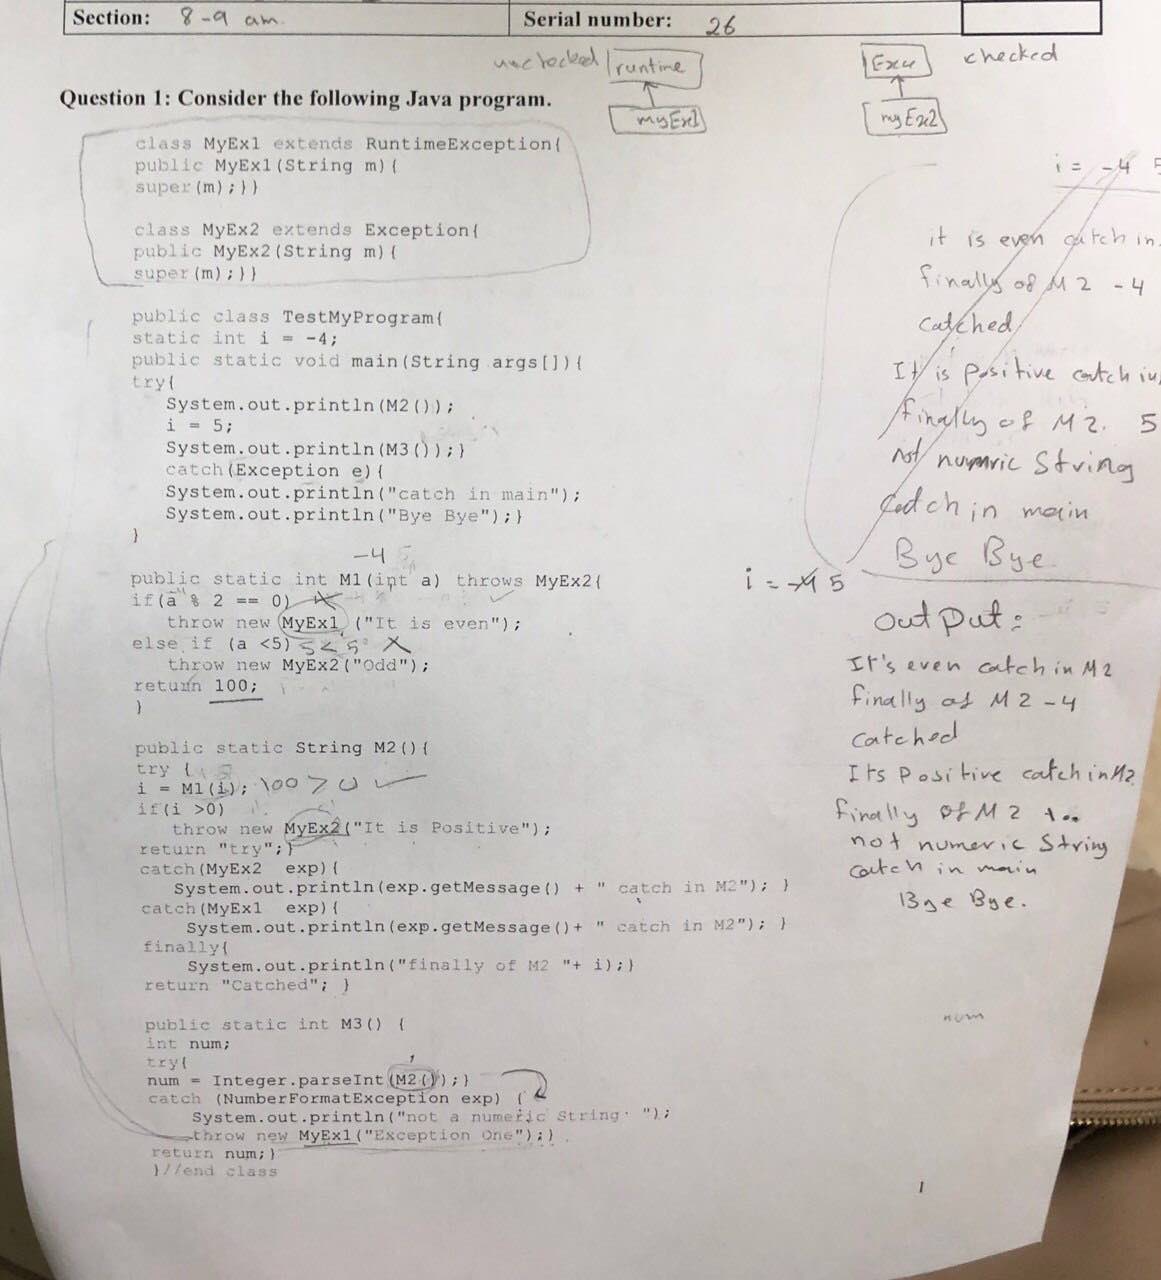 Section: 8-9 am.
Serial number: 26
unchecked runtime
myEx1
Exce checked
myEx2
Question 1: Consider the following Java program.
class MyEx1 extends RuntimeException{
public MyEx1(String m){
super(m);}}
class MyEx2 extends Exception{
public MyEx2(String m){
super(m);}}
public class TestMyProgram{
static int i = -4;
public static void main(String args[]){
try{
System.out.println(M2());
i = 5;
System.out.println(M3());}
catch(Exception e){
System.out.println("catch in main");
System.out.println("Bye Bye");}
}
-4 5
public static int M1(int a) throws MyEx2{
if(a % 2 == 0)
throw new MyEx1 ("It is even");
else if (a <5) 5<5 X
throw new MyEx2("Odd");
return 100;
}
public static String M2(){
try {
i = M1(i); 100 > 0
if(i >0)
throw new MyEx2("It is Positive");
return "try";}
catch(MyEx2 exp){
System.out.println(exp.getMessage() + " catch in M2"); }
catch(MyEx1 exp){
System.out.println(exp.getMessage()+ " catch in M2"); }
finally{
System.out.println("finally of M2 "+ i);}
return "Catched"; }
public static int M3() {
int num;
try{
num = Integer.parseInt(M2());}
catch (NumberFormatException exp) {
System.out.println("not a numeric String ");
throw new MyEx1("Exception One");}
return num;}
}//end class
i = -4 5
it is even catch in
finally of M2 -4
catched
It is positive catch in
finally of M2. 5
not numeric String
catch in main
Bye Bye
i = -4 5
output:
It's even catch in M2
finally of M2 -4
catched
Its positive catch in M2
finally of M2 100
not numeric String
catch in main
Bye Bye.
num
1